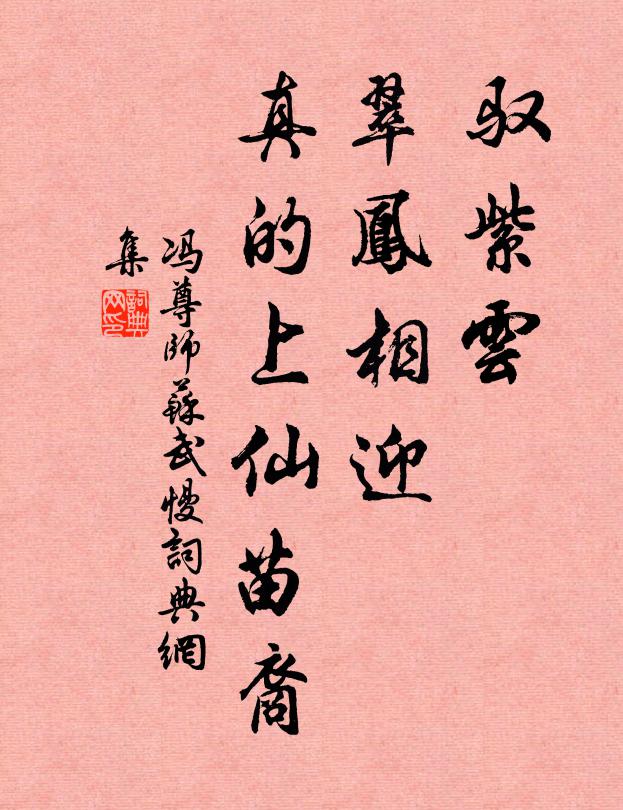 驭紫雲
翠鳳相迎
真的上仙苗裔
冯尊師蘇武慢詞典網
集
詞典网印